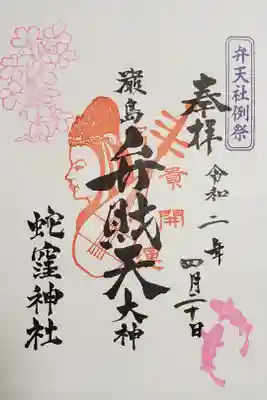 弁天社例祭
奉拝
令和二年
四月二十日
厳島
弁財天
大神
開運
蛇窪神社